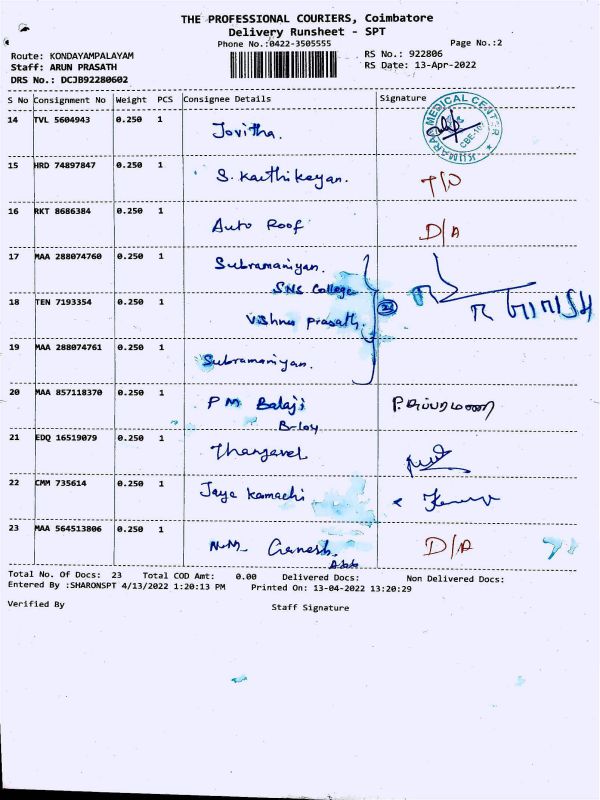 THE PROFESSIONAL COURIERS, Coimbatore
Delivery Runsheet - SPT
Phone No.:0422-3505555
Page No.:2
Route: KONDAYAMPALAYAM
Staff: ARUN PRASATH
DRS No.: DCJB92280602
RS No.: 922806
RS Date: 13-Apr-2022
S No Consignment No Weight PCS Consignee Details Signature
14 TVL 5604943 0.250 1 Jovitha.
MEDICAL CENTER
15 HRD 74897847 0.250 1 S. Karthikeyan.
16 RKT 8686384 0.250 1 Auto Roof D/A
17 MAA 288074760 0.250 1 Subramaniyan.
SNS College
18 TEN 7193354 0.250 1 Vishnu Prasath.
19 MAA 288074761 0.250 1 Subramaniyan.
20 MAA 857118370 0.250 1 P M Balaji P. சுப்பரமணி
21 EDQ 16519079 0.250 1 Thangavel
22 CMM 735614 0.250 1 Jaya Kamachi
23 MAA 564513806 0.250 1 N.M. Ganesh. D/A
Total No. Of Docs: 23 Total COD Amt: 0.00 Delivered Docs: Non Delivered Docs:
Entered By :SHARONSPT 4/13/2022 1:20:13 PM Printed On: 13-04-2022 13:20:29
Verified By Staff Signature